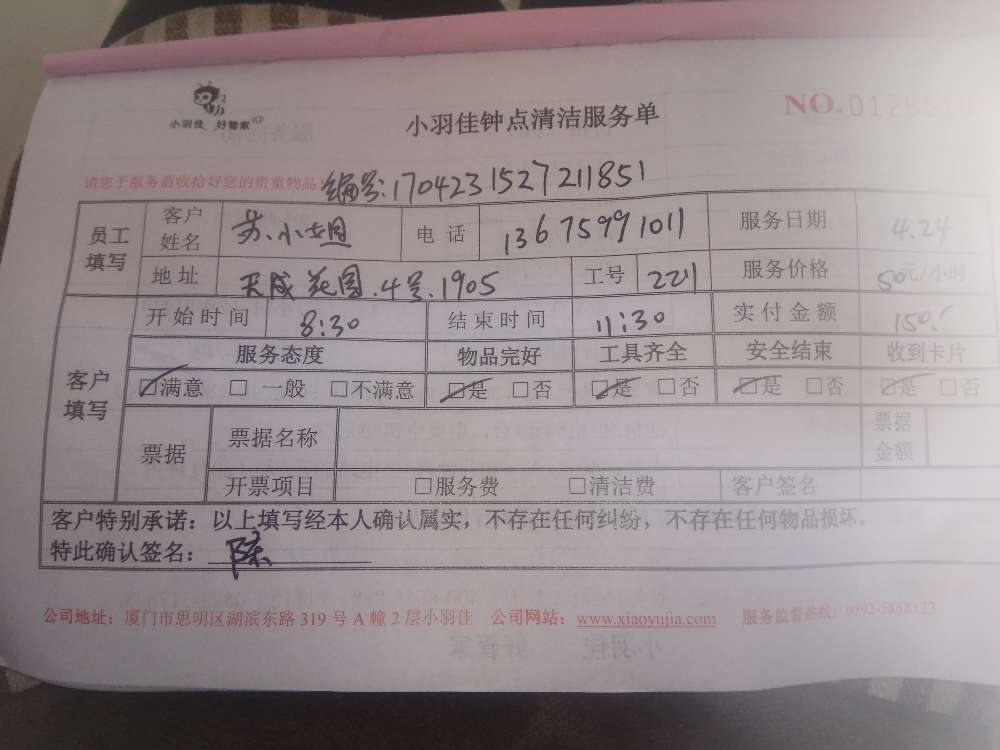 小羽佳 好管家
小羽佳钟点清洁服务单
NO.
请您于服务前收拾好您的贵重物品
编号:1704231527211851
员工填写 客户姓名 苏小姐 电话 13675991011 服务日期 4.24
地址 天成花园.4号.1905 工号 2211 服务价格 50元/小时
客户填写 开始时间 8:30 结束时间 11:30 实付金额 150.
服务态度 物品完好 工具齐全 安全结束 收到卡片
☑满意 □一般 □不满意 ☑是 □否 ☑是 □否 ☑是 □否 ☑是 □否
票据 票据名称 票据金额
开票项目 □服务费 □清洁费 客户签名
客户特别承诺：以上填写经本人确认属实，不存在任何纠纷，不存在任何物品损坏.
特此确认签名：陈
公司地址：厦门市思明区湖滨东路 319 号 A 幢 2 层小羽佳 公司网站：www.xiaoyujia.com 服务监督热线：0592-5888123